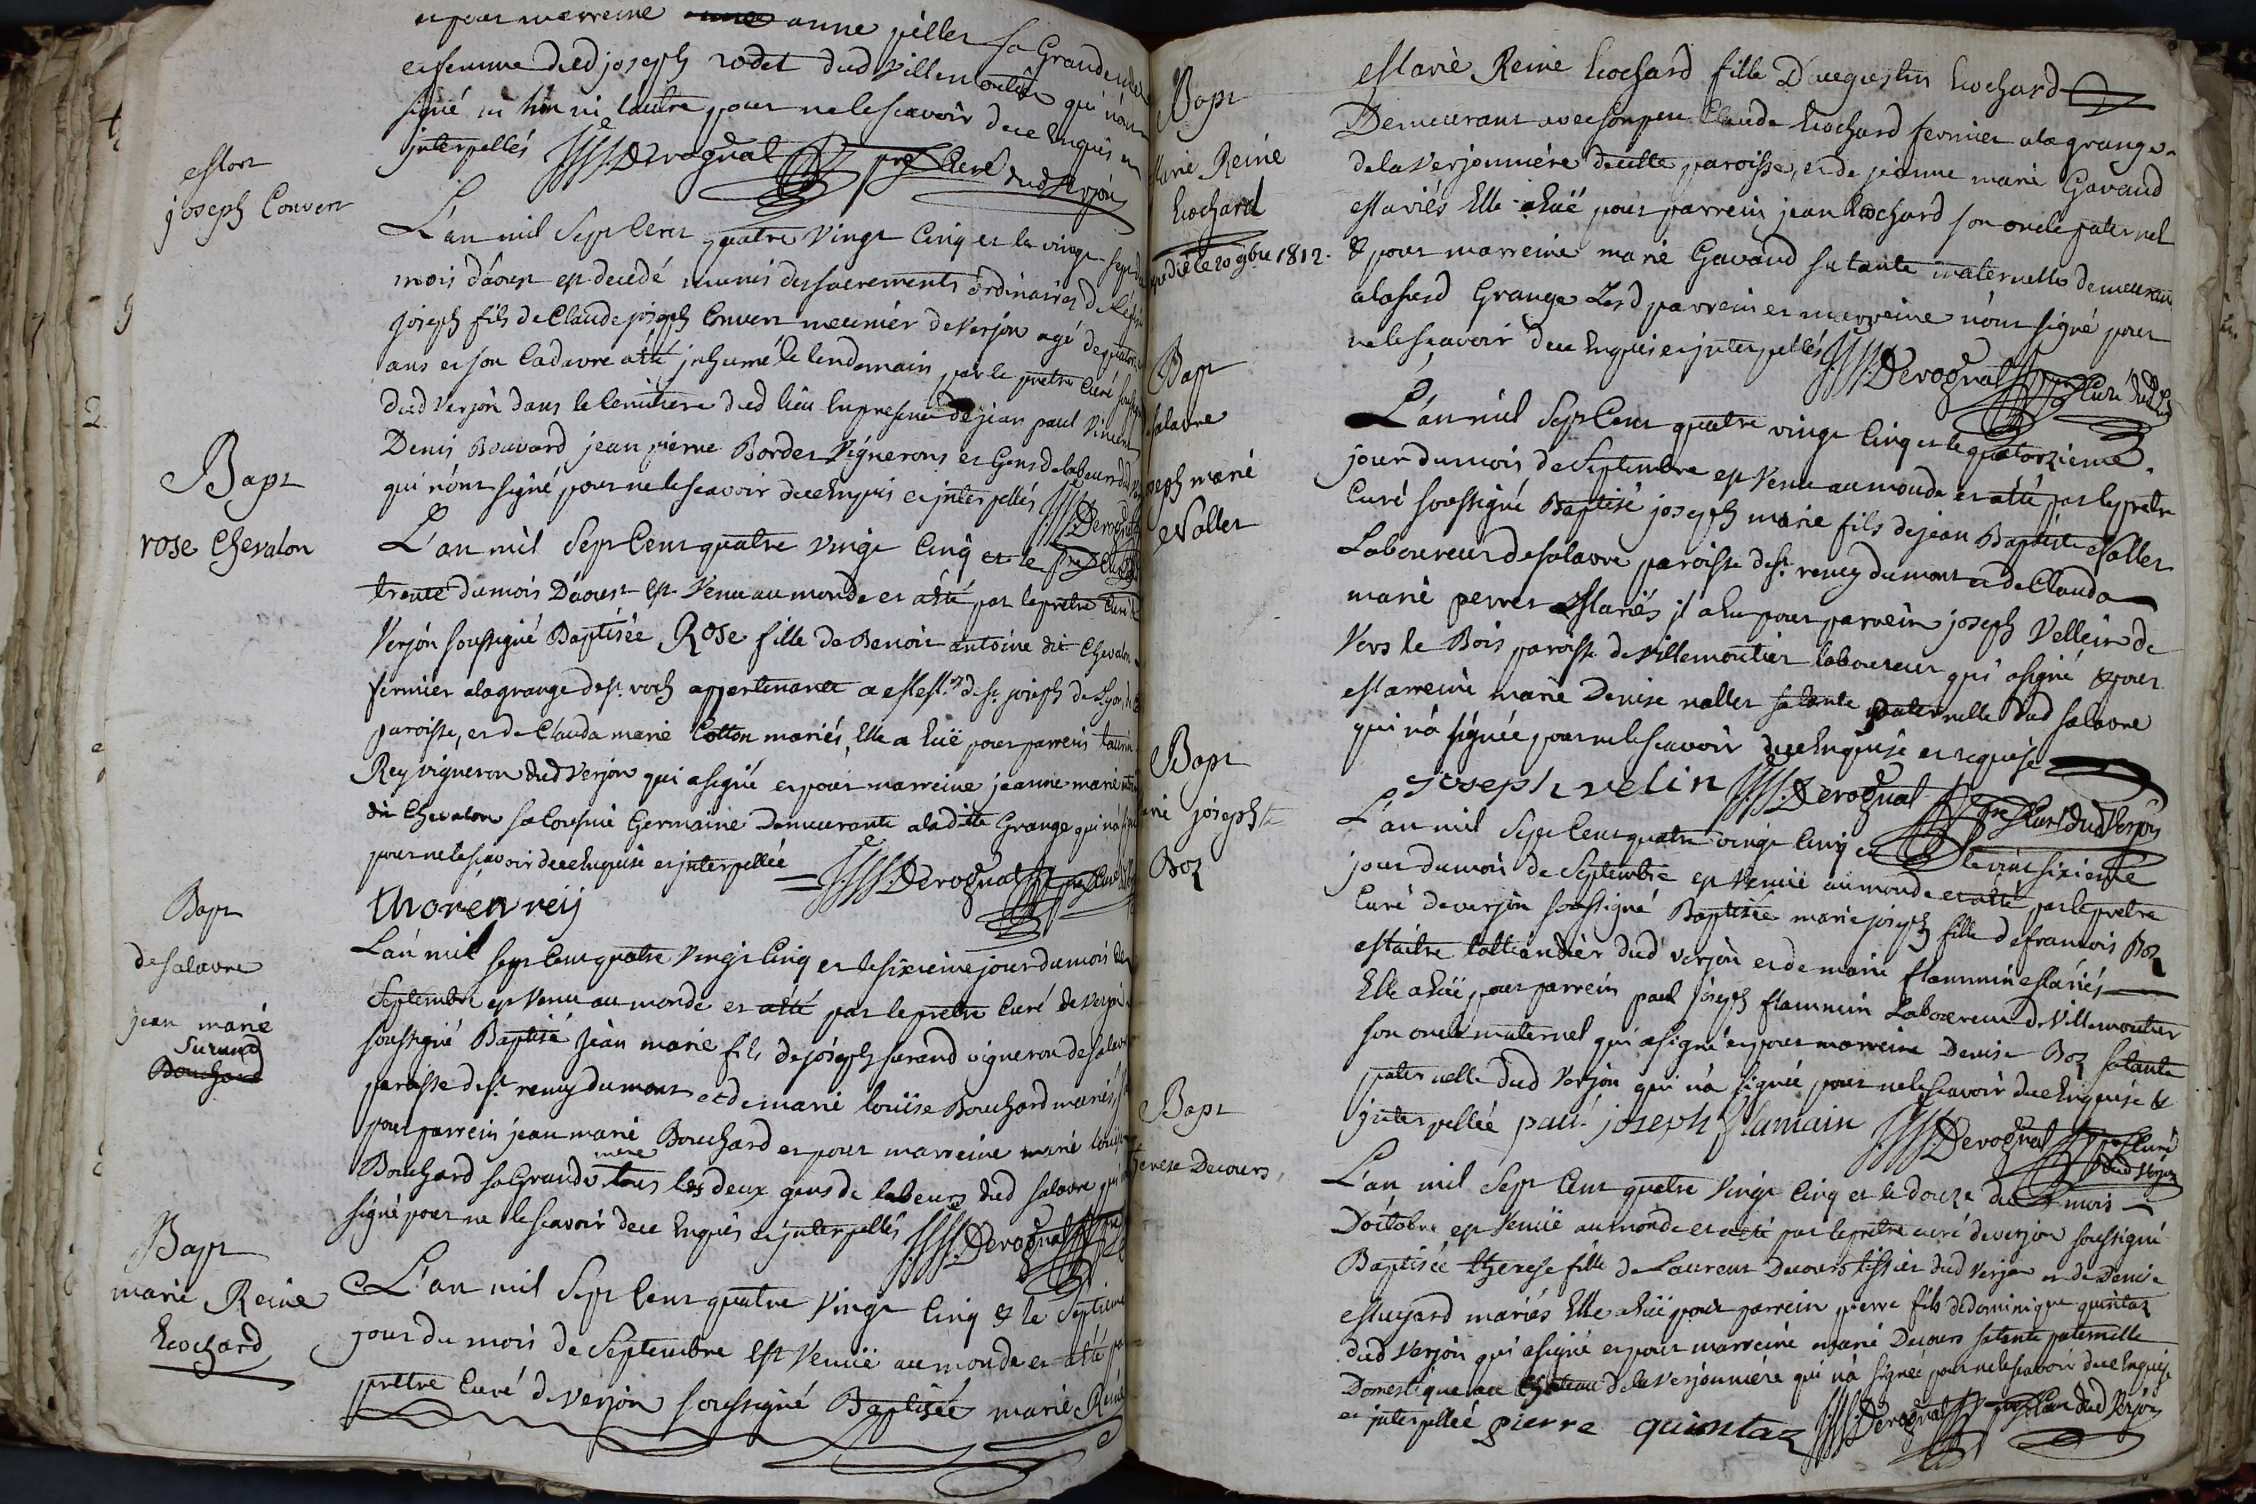 et pour marreine anne piller sa Grande
et femme dud joseph rodet dud villemoutier qui n'ont
signé ni l'un ni l'autre pour ne le scavoir de ce Enquis et
interpellés Derognat pre Curé dud Verjon
Mort
joseph Convert
L'an mil Sept Cent quatre vingt Cinq et le vingt sept du
mois d'aoust est decedé munis des sacrements órdinaires de l'églis
joseph fils de Claude joseph Convert meunier de Verjon agé de quatorze
ans et son Cadavre a été jnhumé le lendemain par le pretre Curé soussigné
dud Verjón dans le Cemitiere dud lieu En presence de jean paul Vincent
Denis Bouvard jean pierre Bordet Vignerons et Gens de labeur dud
qui n'ónt signé pour ne le scavoir de ce Enquis et jnterpellés
Derognat
Bapt
rose Chevalon
L'an mil Sept Cent quatre vingt Cinq et le
trente du mois D'aoust Est Venu au monde et a été par le pretre Curé
Verjón soussigné Baptisée Rose fille de Benoit antoine dit Chevalon
fermier a la grange de st. roch appartenante a Mes.rs de st. joseph de Lyon
paroisse, et de Clauda marie Cotton mariés, Elle a Euë pour parrein
Rey vigneron dud Verjon qui a signé et pour marreine jeanne marie
dit Chevalon sa Cousine Germaine Demeurante a la ditte Grange qui n'a
pour ne le scavoir de ce Enquise et jnterpellée Derognat pre Curé
thoren reij
Bapt
de salavre
jean marie
Surand
Bouchard
L'an mil sept Cent quatre Vingt Cinq et le sixieme jour du mois de
Septembre est Venu au monde et a été par le pretre Curé de Verjon
soussigné Baptisé Jean marie fils de joseph surand vigneron de salavre
paroisse de st. remy du mont et de marie louise Bouchard mariés,
pour parrein jean marie Bouchard et pour marreine marie louise
Bouchard sa Grande mere tous les deux gens de labeurs dud salavre qui
signé pour ne le scavoir de ce Enquis et jnterpellés Derognat
Bapt
marie Reine
Cochard
L'an mil Sept Cent quatre Vingt Cinq & le Septieme
jour du mois de Septembre Est Venuë au monde et a été par
pretre Curé de Verjon soussigné Baptisée marie Reine
Bapt
Marie Reine
Cochard
le 20 9bre 1812.
Marie Reine Cochard fille D'augustin Cochard
Demeurant avec son pere Claude Cochard fermier a la grange
de la Verjonniere de cette paroisse, et de jeanne marie Gavaud
Mariés Elle a Euë pour parrein jean Cochard son oncle paternel
& pour marreine marie Gavaud sa tante maternelle demeurant
a la susd Grange Lesd parrein et marreine n'ónt signé pour
ne le scavoir de ce Enquis et jnterpellés Derognat pre Curé dud
Bapt
Salavre
joseph marie
Nallet
L'an mil Sept Cent quatre vingt Cinq et le quatorzieme
jour du mois de Septembre est Venu au monde et a été par le pretre
Curé soussigné Baptisé joseph marie fils de jean Baptiste Nallet
Laboureur de salavre paroisse de st. remy du mont et de Clauda
marie perret Mariés jl a Eu pour parrein joseph Vellein de
Vers le Bois paroisse de Villemoutier laboureur qui a signé & pour
Marreine marie Denise nallet sa tante paternelle dud salavre
qui n'a signée pour ne le scavoir de ce Enquise et requise
joseph velin Derognat pre Curé dud Verjon
Bapt
marie josephte
Boz
L'an mil Sept Cent quatre vingt Cinq et le vint sixieme
jour du mois de Septembre est Venuë au monde et a été par le pretre
Curé de verjón soussigné Baptisée marie joseph fille de francois Boz
Maitre tailliandier dud verjòn et de marie flammin Mariés
Elle a Euë pour parrein paul joseph flammin Laboureur de Villemoutier
son oncle maternel qui a signé et pour marreine Denise Boz sa tante
paternelle dud Verjón qui n'a signée pour ne le scavoir de ce Enquise &
jnterpellée paul joseph flamain Derognat pre Curé
dud Verjon
Bapt
therese Decours
L'an mil Sept Cent quatre Vingt Cinq et le douze du mois
D'octobre est Venuë au monde et a été par le pretre curé de verjon soussigné
Baptisée therese fille de Laurent Decours tissier dud Verjon et de Denise
Muyard mariés Elle a Euë pour parrein pierre fils de dominique quintaz
dud Verjón qui a signé et pour marreine marie Decours sa tante paternelle
Domestique au Château de la Verjonniere qui n'a signée pour ne le scavoir de ce Enquise
et jnterpellée pierre quintaz Derognat pre Curé dud Verjón